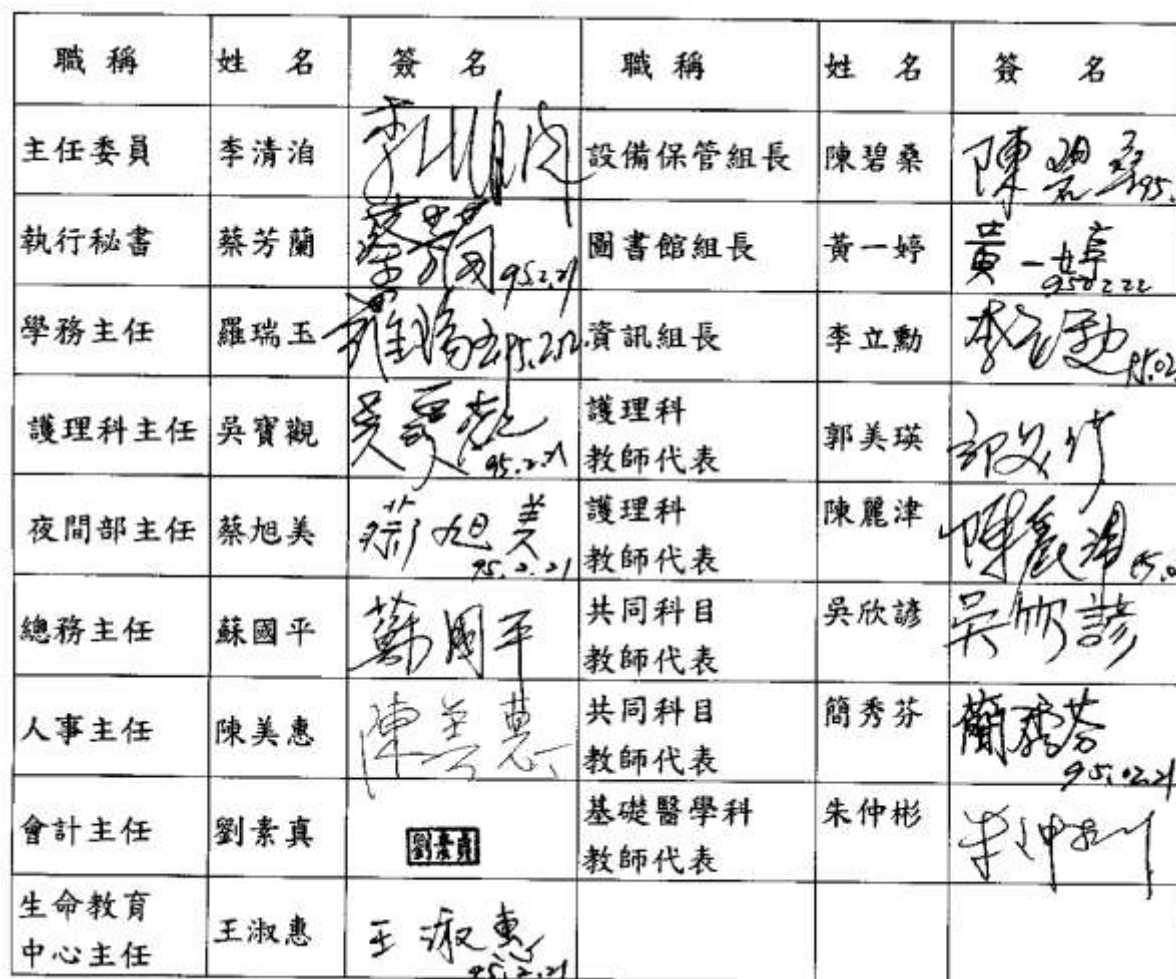 職 稱 姓 名 簽 名 職 稱 姓 名 簽 名
主任委員 李清泊 設備保管組長 陳碧桑 陳碧桑 95.
執行秘書 蔡芳蘭 蔡芳蘭 95.2.21 圖書館組長 黃一婷 黃一婷 950222
學務主任 羅瑞玉 羅瑞玉 資訊組長 李立勳 李立勳 95.02
護理科主任 吳寶觀 吳寶觀 95.2.21 護理科
教師代表 郭美瑛
夜間部主任 蔡旭美 蔡旭美 95.2.21 護理科
教師代表 陳麗津 陳麗津
總務主任 蘇國平 蘇國平 共同科目
教師代表 吳欣諺 吳欣諺
人事主任 陳美惠 陳美惠 共同科目
教師代表 簡秀芬 簡秀芬 95.02.21
會計主任 劉素真 劉素真 基礎醫學科
教師代表 朱仲彬 朱仲彬
生命教育
中心主任 王淑惠 王淑惠 95.2.21